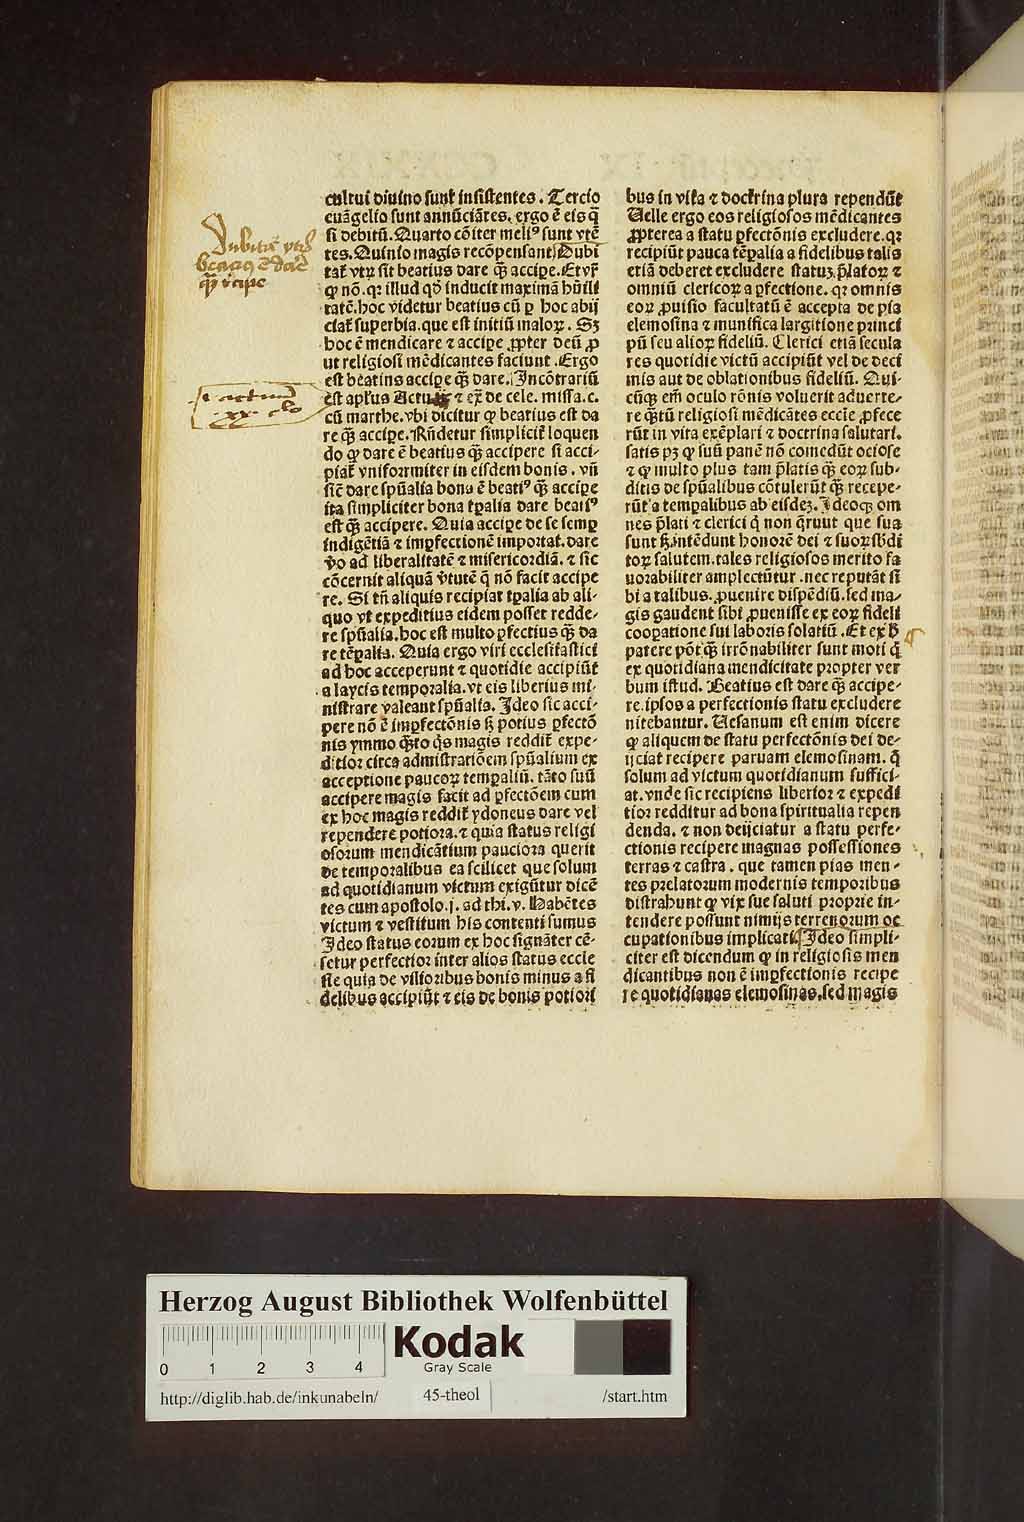 cultui diuino sunt insistentes. Tercio
euāgelio sunt annūciātes. ergo ē eis q̄
si debitū. Quarto cōiter meliꝰ sunt vtē
tes. Quinto magis recōpensant) Dubi
tat᷑ vtꝝ sit beatius dare q̄ꝫ accipe. Et vr̄
ꝙ nō. qꝛ illud qd̄ inducit maximā hūili
tatē. hoc videtur beatius cū ꝑ hoc abij
ciat᷑ superbia. que est initiū maloꝝ. Sꝫ
hoc ē mendicare ⁊ accipe ꝓpter deū ꝓ
ut religiosi mēdicantes faciunt. Ergo
est beatius accipe q̄ꝫ dare. Incōtrariū
est apl'us Actu ⁊ ex̄ de cele. missa. c.
cū marthe. vbi dicitur ꝙ beatius est da
re q̄ꝫ accipe. Rn̄detur simplicit᷑ loquen
do ꝙ dare ē beatius q̄ꝫ accipere si acci-
piat᷑ vniformiter in eisdem bonis. vn̄
sic̄ dare spūalia bona ē beatiꝰ q̄ꝫ accipe
ita simpliciter bona tꝑalia dare beatiꝰ
est q̄ꝫ accipere. Quia accipe de se semꝑ
indigētiā ⁊ imꝑfectionē importat. dare
ꝟo ad liberalitatē ⁊ misericordiā. ⁊ sic
cōcernit aliquā ꝟtutē q̄ nō facit accipe
re. Si tn̄ aliquis recipiat tꝑalia ab ali-
quo vt expeditius eidem posset redde-
re spūalia. hoc est multo ꝑfectius q̄ꝫ da
re tēꝑalia. Quia ergo viri ecclesiastici
ad hoc acceperunt ⁊ quotidie accipiūt
a laycis temporalia. vt eis liberius mi-
nistrare valeant spūalia. Ideo sic acci-
pere nō ē imꝑfectōnis sꝫ potius ꝑfectō
nis ymmo q̄ꝫto q̄s magis reddit᷑ expe-
ditior circa admistratiōem spūalium ex
acceptione paucoꝝ tempaliū. tāto suū
accipere magis facit ad ꝑfectōem cum
ex hoc magis reddit᷑ ydoneus dare vel
rependere potiora. ⁊ quia status religi
osorum mendicātium pauciora querit
de temporalibus ea scilicet que solum
ad quotidianum victum exigūtur dicē
tes cum apostolo. j. ad thi. v. Habētes
victum ⁊ vestitum his contenti sumus
Ideo status eorum ex hoc signāter cē-
setur perfectior inter alios status eccle
sie quia de vilioribus bonis minus a fi
delibus accipiūt ⁊ eis de bonis potiori
bus in vita ⁊ doctrina plura rependūt
Uelle ergo eos religiosos mēdicantes
ꝓpterea a statu ꝑfectōnis excludere. qꝛ
recipiūt pauca tēꝑalia a fidelibus talis
etiā deberet excludere statuꝫ p̄latoꝝ ⁊
omniū clericoꝝ a ꝑfectione. qꝛ omnis
eoꝝ ꝓuisio facultatū ē accepta de pia
elemosina ⁊ munifica largitione princi
pū seu alioꝝ fideliū. Clerici etiā secula
res quotidie victū accipiūt vel de deci
mis aut de oblationibus fideliū. Qui-
cūqꝫ em̄ oculo rōnis voluerit aduerte-
re q̄ꝫtū religiosi mēdicātes eccl'ie ꝓfece
rūt in vita exēplari ⁊ doctrina salutari.
satis pꝫ ꝙ suū panē nō comedūt ociose
⁊ ꝙ multo plus tam p̄latis q̄ꝫ eoꝝ sub-
ditis de spūalibus cōtulerūt q̄ꝫ recepe-
rūt a temꝑalibus ab eisdeꝫ. Ideoqꝫ om
nes p̄lati ⁊ clerici q̄ non q̄ruut que sua
sunt sꝫ intēdunt honorē dei ⁊ suoꝝ sb̄di
toꝝ salutem. tales religiosos merito fa
uorabiliter amplectūtur. nec reputāt si
bi a talibus. ꝓuenire dispēdiū. sed ma-
gis gaudent sibi ꝓuenisse ex eoꝝ fideli
cooꝑatione sui laboris solatiū. Et ex ħ
patere pōt q̄ꝫ irrōnabiliter sunt moti q̄
ex quotidiana mendicitate propter ver
bum istud. Beatius est dare q̄ꝫ accipe-
re. ipsos a perfectionis statu excludere
nitebantur. Uesanum est enim dicere
ꝙ aliquem de statu perfectōnis dei de-
ijciat recipere paruam elemosinam. q̄
solum ad victum quotidianum suffici-
at. vnde sic recipiens liberior ⁊ expedi
tior redditur ad bona spiritualia repen
denda. ⁊ non deijciatur a statu perfe-
ctionis recipere magnas possessiones
terras ⁊ castra. que tamen pias men-
tes prelatorum modernis temporibus
distrahunt ꝙ vix sue saluti proprie in-
tendere possunt nimijs terrenorum oc
cupationibus implicati. Ideo simpli-
citer est dicendum ꝙ in religiosis men
dicantibus non ē imꝑfectionis recipe
re quotidianas elemosinas. sed magis
Herzog August Bibliothek Wolfenbüttel
0 1 2 3 4
Kodak
Gray Scale
http://diglib.hab.de/inkunabeln/
45-theol
/start.htm